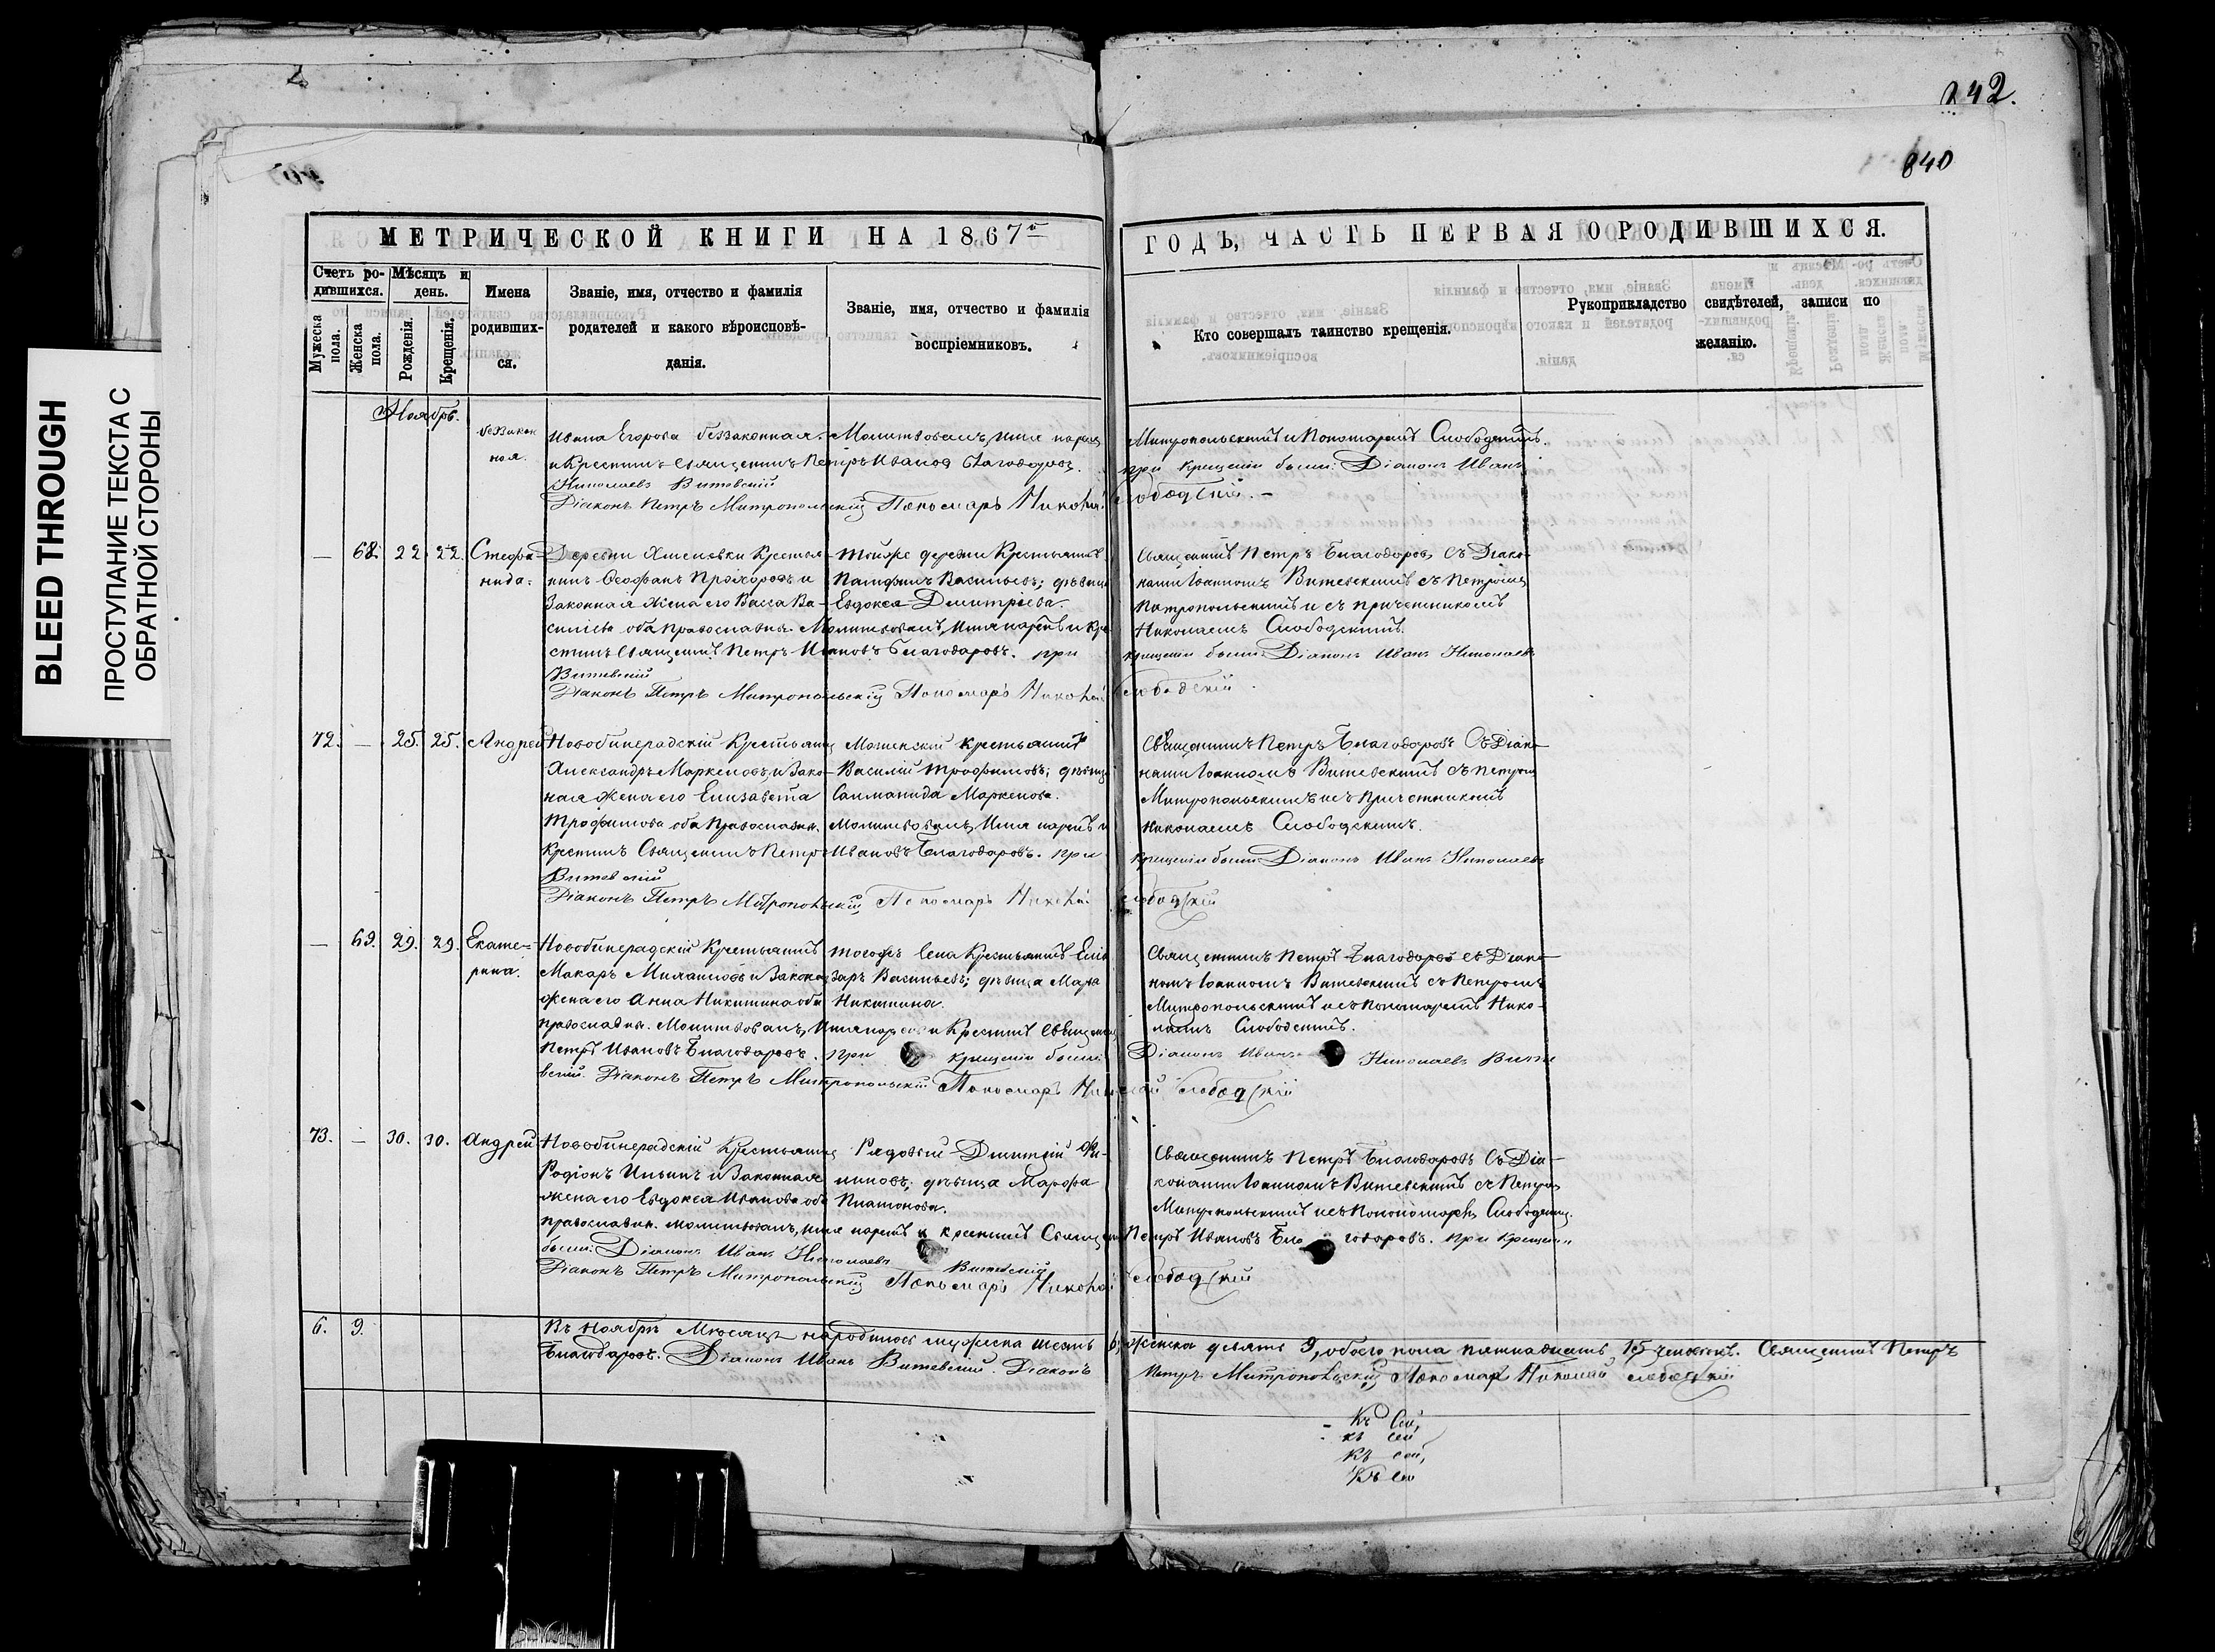 242.
840
BLEED THROUGH
ПРОСТУПАНИЕ ТЕКСТА С
ОБРАТНОЙ СТОРОНЫ
МЕТРИЧЕСКОЙ КНИГИ НА 1867й
ГОДЪ, ЧАСТЬ ПЕРВАЯ О РОДИВШИХСЯ.
Счетъ ро-
дившихся.
Мужеска пола.
Женска пола.
Мѣсяцъ и
день.
Рожденія.
Крещенія.
Имена
родивших-
ся.
Званіе, имя, отчество и фамилія
родителей и какого вѣроисповѣ-
данія.
Званіе, имя, отчество и фамилія
воспріемниковъ.
Кто совершалъ таинство крещенія.
Рукоприкладство свидѣтелей, записи по
желанію.
Ноябрь.
беззакон
ная.
Ивана Егорова беззаконная. Молитвовалъ, имя нарец
и Крестилъ Священникъ Петръ Ивановъ Благодаровъ.
Николаевъ Витевскій
Діаконъ Петръ Митропольскій Пономарь Николай Слободскій. –
Митропольскимъ и Пономаремъ Слободскимъ.
при крещеніи были: Діаконъ Иванъ
— 68. 22. 22. Стефа-
нида.
Деревни Крестья-
нинъ Ѳеофанъ Прохоровъ и
Законная жена его Васса Ва-
сильева оба православн. Молитвовалъ, имя нарекъ и Кре
стилъ Священникъ Петръ Ивановъ Благодаровъ. при
Витевскій
Діаконъ Петръ Митропольскій Пономарь Николай Слободскій.
Тойже деревни Крестьянинъ
Памфилъ Васильевъ; дѣвица
Евдокса Дмитріева.
Священникъ Петръ Благодаровъ Съ Діако-
нами Іоанномъ Витевскимъ съ Петромъ
Митропольскимъ и съ причетникомъ
Николаемъ Слободскимъ.
крещеніи были: Діаконъ Иванъ Николаевъ
72. — 25. 25. Андрей
Новобинерадскій Крестьянинъ
Александръ Маркеловъ, и Зако-
ная жена его Елизавета
Трофимова оба Православн. Молитвовалъ, Имя нарекъ и
Крестилъ Священникъ Петръ Ивановъ Благодаровъ. при
Витевскій
Діаконъ Петръ Митропольскій Пономарь Николай Слободскій
крестьянинъ
Василій Трофимовъ; дѣвица
Саломанида Маркелова.
Священникъ Петръ Благодаровъ Съ Діако-
нами Іоанномъ Витевскимъ съ Петромъ
Митропольскимъ и съ Причетникомъ
Николаемъ Слободскимъ.
крещеніи были Діаконъ Иванъ Николаевъ
— 69. 29. 29. Екате-
рина.
Новобинерадскій Крестьянинъ
Макаръ и Законная
жена его Анна Никитина оба
православн. Молитвовалъ, Имя нарекъ и Крестилъ Священникъ
Петръ Ивановъ Благодаровъ. при крещеніи были:
вскій. Діаконъ Петръ Митропольскій Пономарь Николай Слободскій
тогоже села Крестьянинъ Елиа
заръ Васильевъ; дѣвица Марѳа
Никитина.
Священникъ Петръ Благодаровъ съ Діако-
номъ Іоанномъ Витевскимъ съ Петромъ
Митропольскимъ и съ Пономаремъ Нико-
лаемъ Слободскимъ.
Діаконъ Иванъ Николаевъ Вите
73. — 30. 30. Андрей
Новобинерадскій Крестьянинъ
Родіонъ Ильинъ и Законная
жена его Евдокея Иванова оба
православн. молитвовалъ, имя нарекъ и крестилъ Священ Петръ Ивановъ Благодаровъ. при Крещеніи
были: Діаконъ Иванъ Николаевъ Витевскій
Діаконъ Петръ Митропольскій Пономарь Николай Слободскій
Рядовый Дмитрій Фи-
липовъ; дѣвица Марѳа
Платонова.
Священникъ Петръ Благодаровъ Съ Діа-
конами Іоанномъ Витевскимъ съ Петромъ
Митропольскимъ и съ Слободским.
6. 9.
Въ Ноябрѣ Мѣсяцѣ народилось мужеска шесть 6, женска девять 9, обоего пола пятнадцать 15 человѣкъ. Священникъ Петръ
Благодаровъ. Діаконъ Иванъ Витевскій. Діаконъ Петръ Митропольскій Пономарь Николай Слободскій
Къ Сей,
къ сей
Къ сей,
Къ сей